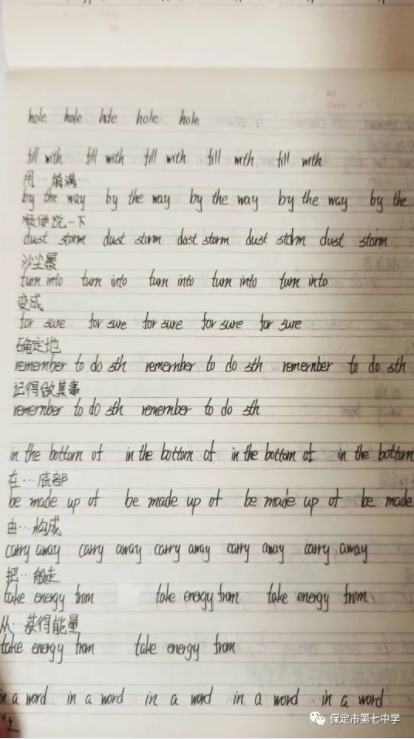 hole hole hole hole hole
fill with fill with fill with fill with fill with
用…填满…
by the way by the way by the way by the way by the
顺便说一下
dust storm dust storm dust storm dust storm dust storm
沙尘暴
turn into turn into turn into turn into turn into
变成
for sure for sure for sure for sure for sure
确定地
remember to do sth remember to do sth remember to do sth
记得做某事
remember to do sth remember to do sth
in the bottom of in the bottom of in the bottom of in the bottom
在…底部
be made up of be made up of be made up of be made
由…构成
carry away carry away carry away carry away carry away
把…搬走
take energy from take energy from take energy from
从…获得能量
take energy from take energy from
in a word in a word in a word in a word in a word
保定市第七中学